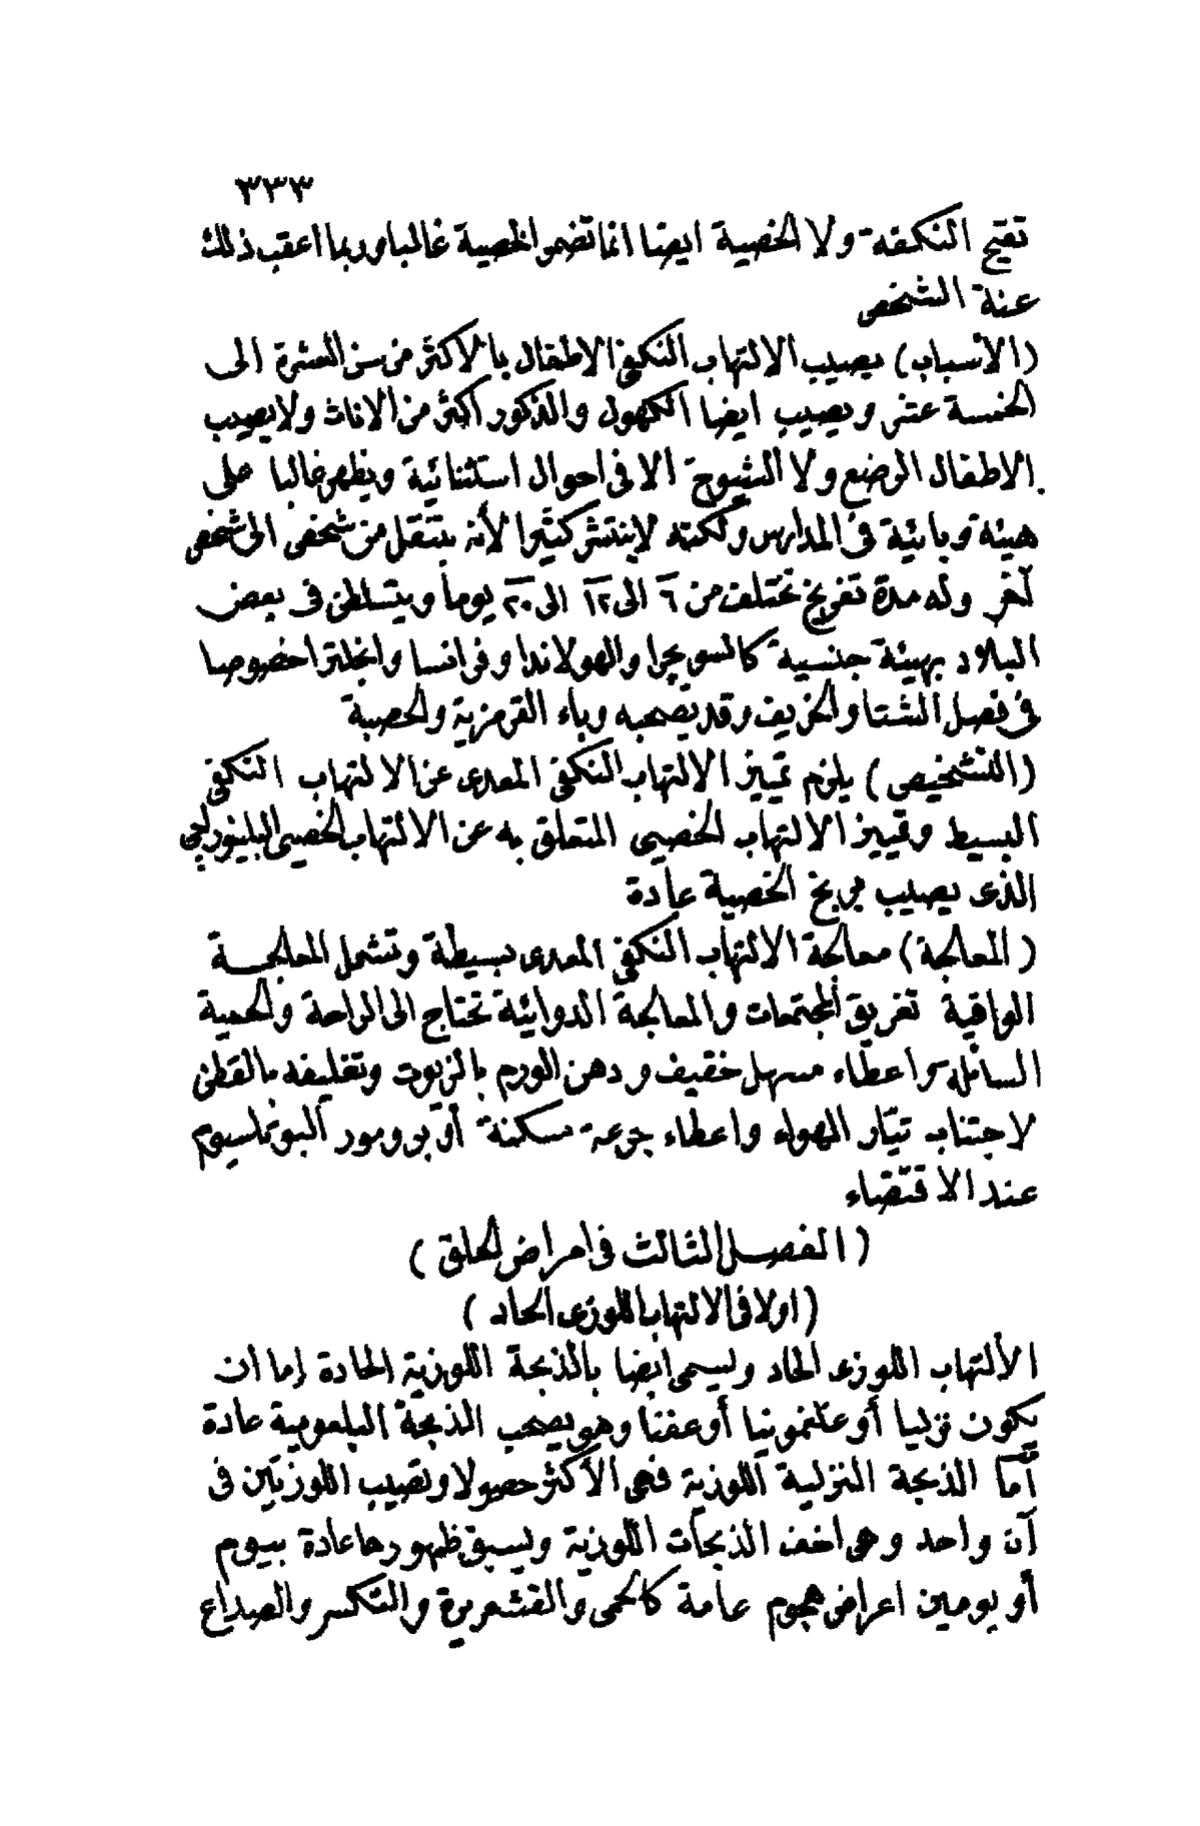 ٣٣٣
تقيح النكفة ولا الخصية ايضا انما تضمر الخصية غالبا وربما اعقب ذلك
عنة الشخص
(الأسباب) يصيب الالتهاب النكفى الاطفال بالاكثر من سن العشرة الى
الخمسة عشر ويصيب ايضا الكهول والذكور اكثر من الاناث ولا يصيب
الاطفال الرضع ولا الشيوخ الا فى احوال استثنائية ويظهر غالبا على
هيئة وبائية فى المدارس ولكنه لا ينتشر كثيرا لأنه ينتقل من شخص الى شخص
آخر وله مدة تفريخ تختلف من ٦ الى ١٢ الى ٢٠ يوما ويتسلطن فى بعض
البلاد بهيئة جنسية كالسويجرا والهولاندا وفرانسا وانجلترا خصوصا
فى فصل الشتا والخريف وقد يصحبه وباء القرمزية والحصبة
(التشخيص) يلزم تمييز الالتهاب النكفى المعدى عن الالتهاب النكفى
البسيط وتمييز الالتهاب الخصيى المتعلق به عن الالتهاب الخصيى البلينوراجى
الذى يصيب بربخ الخصية عادة
(المعالجة) معالجة الالتهاب النكفى المعدى بسيطة وتشمل المعالجة
الواقية تفريق المجتمعات والمعالجة الدوائية تحتاج الى الراحة والحمية
السائلة واعطاء مسهل خفيف ودهن الورم بالزيوت وتغليفه بالقطن
لاجتناب تيّار الهواء واعطاء جرعة مسكنة أو برومور البوتاسيوم
عند الاقتضاء
(الفصل الثالث فى امراض الحلق)
(اولا فى الالتهاب اللوزى الحاد)
الألتهاب اللوزى الحاد وليسمى ايضا بالذبحة اللوزية الحادة إما ان
يكون نزليا أو علغمونيا أو عفنا وهو يصحب الذبحة البلعومية عادة
أمّا الذبحة النزلية اللوزية فهى الأكثر حصولا وتصيب اللوزتين فى
آن واحد وهى اخف الذبحات اللوزية ويسبق ظهورها عادة بيوم
أو يومين اعراض هجوم عامة كالحمى والقشعريرة والتكسر والصداع